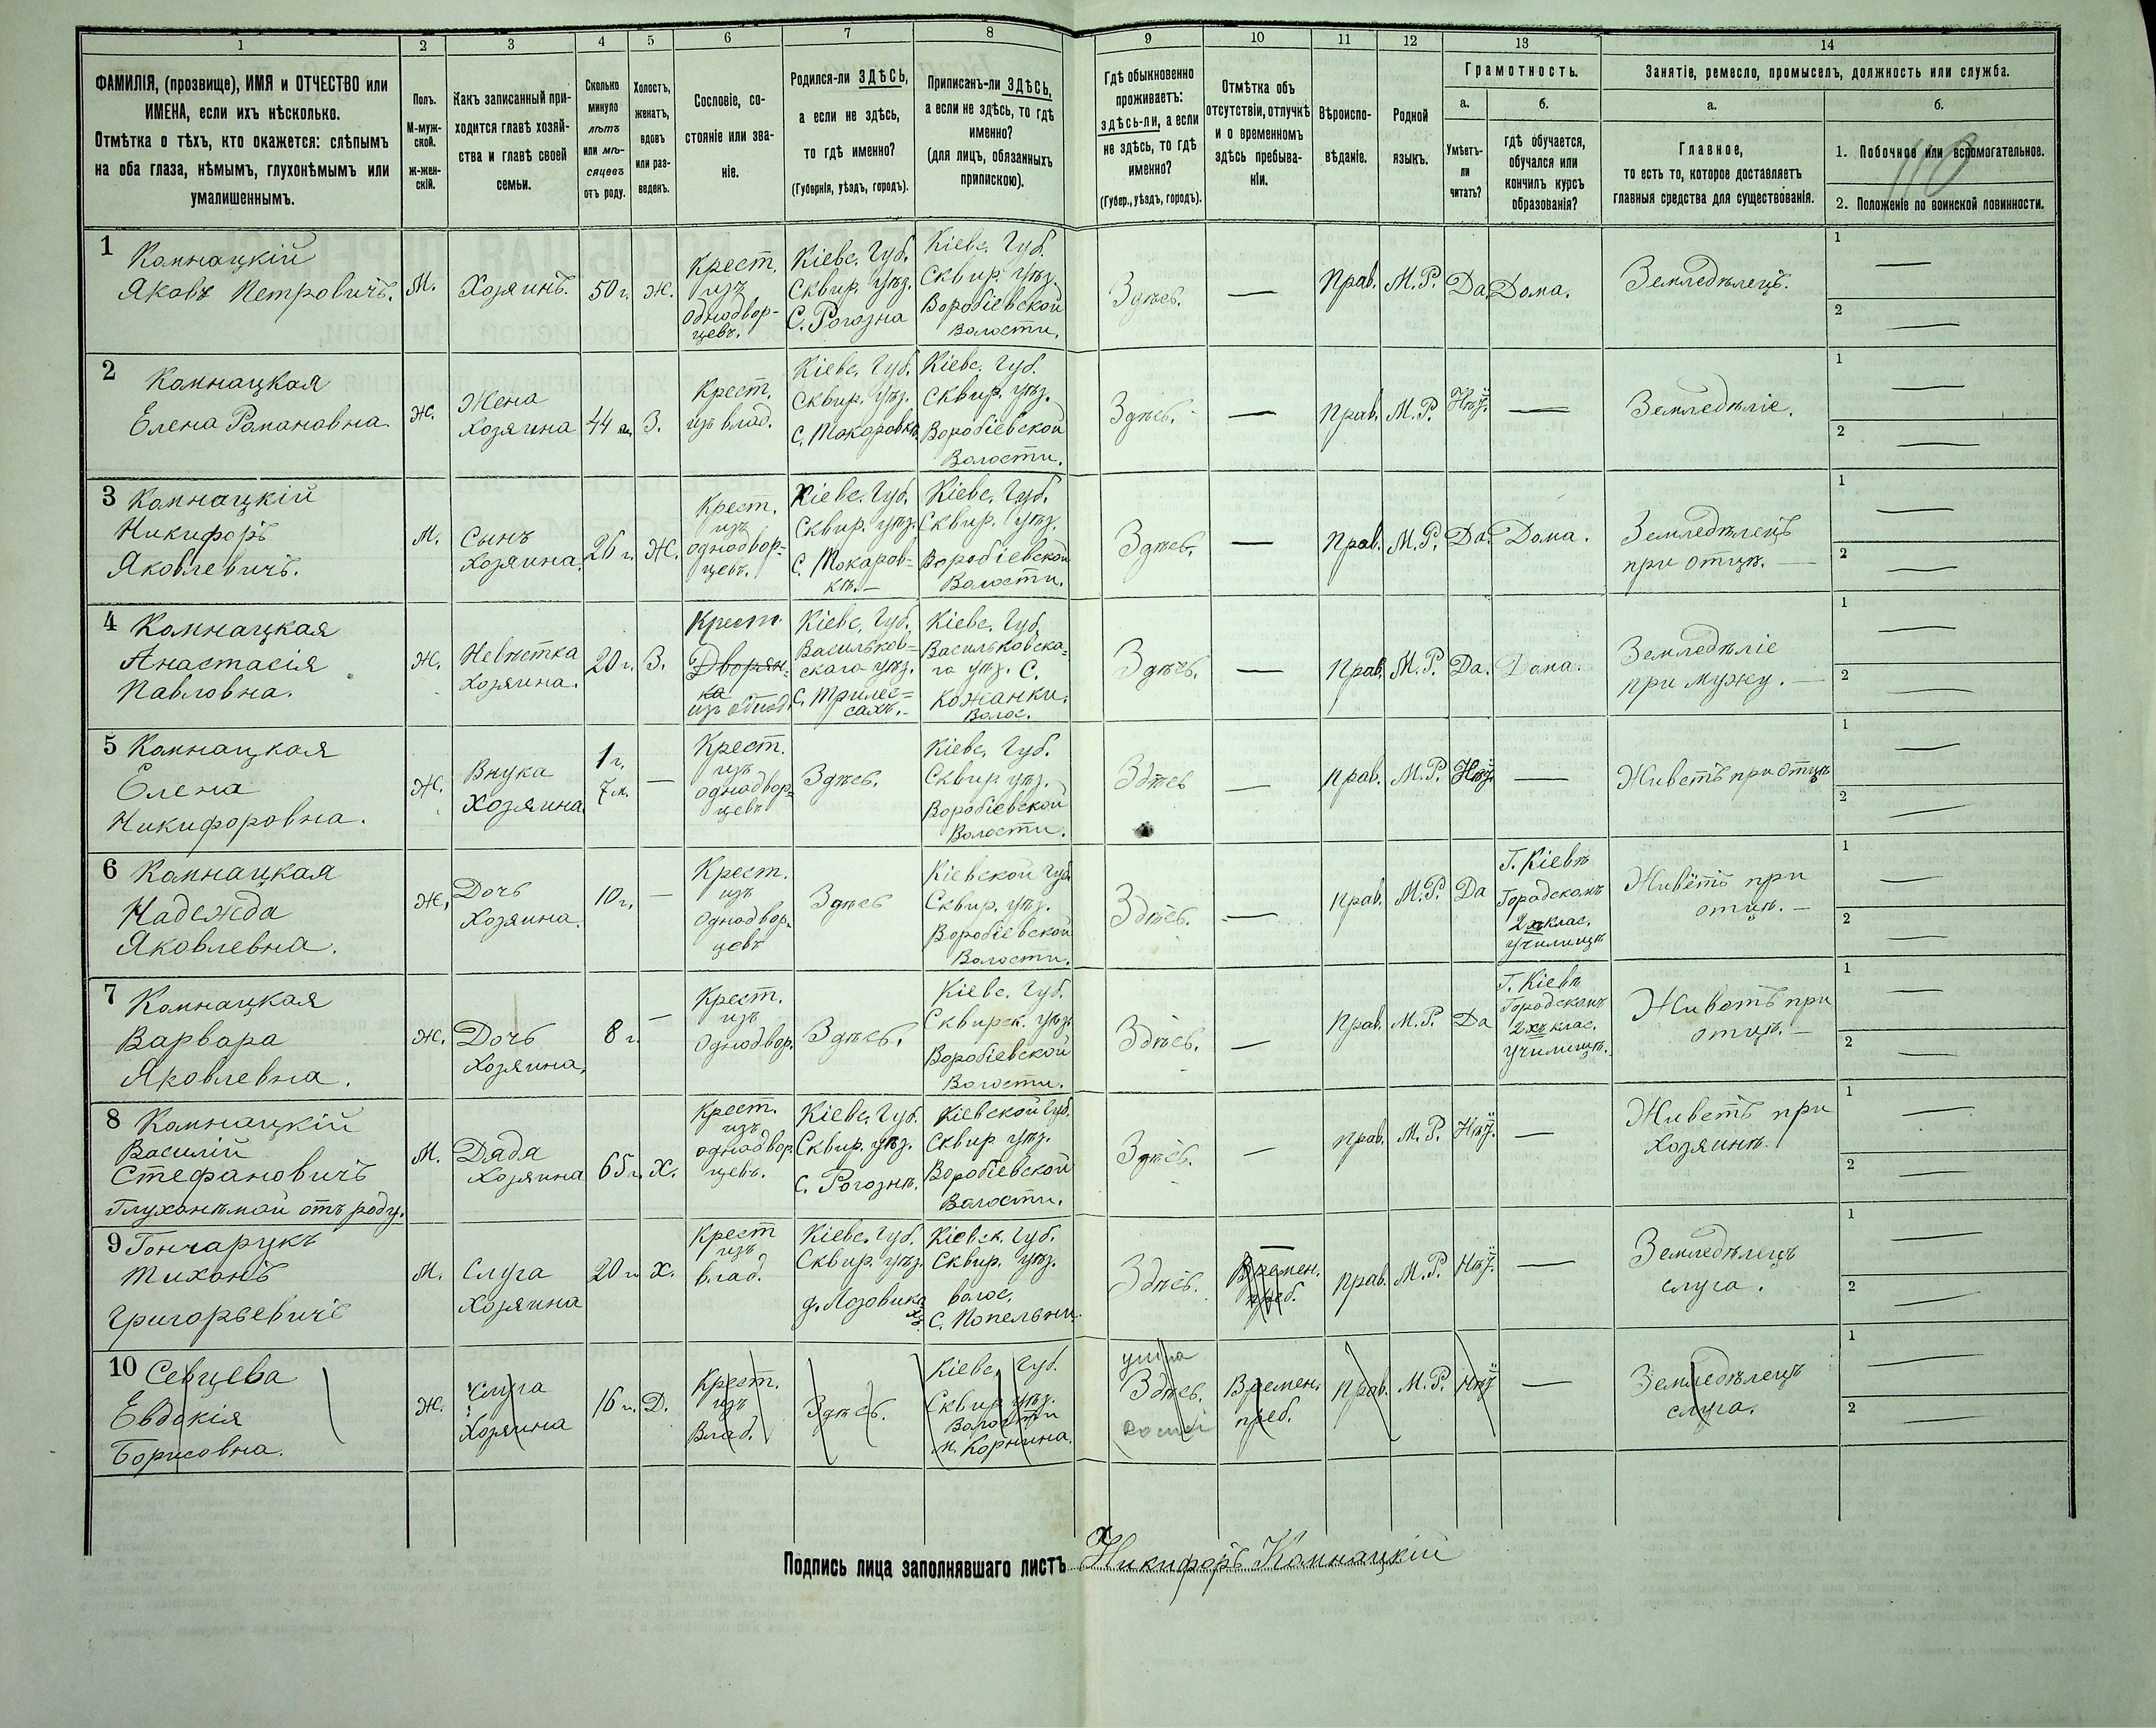 1 2 3 4 5 6 7 8 9 10 11 12 13 14
ФАМИЛІЯ, (прозвище), ИМЯ и ОТЧЕСТВО или
ИМЕНА, если ихъ нѣсколько.
Отмѣтка о тѣхъ, кто окажется: слѣпымъ
на оба глаза, нѣмымъ, глухонѣмымъ или
умалишеннымъ.
Полъ.
М-муж-
ской.
ж-жен-
скій.
Какъ записанный при-
ходится главѣ хозяй-
ства и главѣ своей
семьи.
Сколько
минуло
лѣтъ
или мѣ-
сяцевъ
отъ роду.
Холостъ,
женатъ,
вдовъ
или раз-
веденъ.
Сословіе, со-
стояніе или зва-
ніе.
Родился-ли ЗДѢСЬ,
а если не здѣсь,
то гдѣ именно?
(Губернія, уѣздъ, городъ).
Приписанъ-ли ЗДѢСЬ,
а если не здѣсь, то гдѣ
именно?
(для лицъ, обязанныхъ
припискою).
Гдѣ обыкновенно
проживаетъ:
здѣсь-ли, а если
не здѣсь, то гдѣ
именно?
(Губер., уѣздъ, городъ).
Отмѣтка объ
отсутствіи, отлучкѣ
и о временномъ
здѣсь пребыва-
ніи.
Вѣроиспо-
вѣданіе.
Родной
языкъ.
Грамотность.
а.
Умѣетъ-
ли
читать?
б.
гдѣ обучается,
обучался или
кончилъ курсъ
образованія?
Занятіе, ремесло, промыселъ, должность или служба.
а.
Главное,
то есть то, которое доставляетъ
главныя средства для существованія.
б.
1. Побочное или вспомогательное.
110
2. Положеніе по воинской повинности.
1 Комнацкій
Яковъ Петровичъ.
М.
Хозяинъ.
50 г.
Ж.
Крест.
изъ
однодвор-
цевъ.
Кіевс. Губ.
Сквир. уѣз.
С. Рогозна
Кіевс. Губ.
Сквир. уѣз.
Воробіевской
Волости.
Здѣсь.
—
Прав.
М.Р.
Да.
Дома.
Земледѣлецъ.
1 —
2 —
2 Комнацкая
Елена Романовна
Ж.
Жена
Хозяина
44
З.
Крест.
изъ влад.
Кіевс. Губ.
Сквир. уѣз.
С. Токаровкѣ
Кіевс. Губ.
Сквир. уѣз.
Воробіевской
Волости.
Здѣсь.
—
Прав.
М.Р.
Нѣт.
—
Земледѣліе.
1 —
2 —
3 Комнацкій
Никифоръ
Яковлевичъ.
М.
Сынъ
Хозяина.
26 г.
Ж.
Крест.
изъ
однодвор-
цевъ.
Кіевс. Губ.
Сквир. уѣз.
С. Токаров-
кѣ. —
Кіевс. Губ.
Сквир. уѣз.
Воробіевской
Волости.
Здѣсь.
—
Прав.
М.Р.
Да.
Дома.
Земледѣлецъ
при отцѣ. —
1 —
2 —
4 Комнацкая
Анастасія
Павловна.
Ж.
Невѣстка
Хозяина.
20 г.
З.
Крест
Дворян-
ка
изъ однод.
Кіевс. Губ.
Васильков-
скаго уѣз.
С. Трилес-
сахъ. —
Кіевс. Губ.
Васильковска-
го уѣз. С.
Кожанки.
Волос.
Здѣсь.
—
Прав.
М.Р.
Да.
Дома.
Земледѣліе
при мужу. —
1 —
2 —
5 Комнацкая
Елена
Никифоровна.
Ж.
Внука
Хозяина
1 г.
7 м.
—
Крест.
изъ
однодвор-
цевъ
Здѣсь.
Кіевс. Губ.
Сквир уѣз.
Воробіевской
Волости.
Здѣсь
—
Прав.
М.Р.
Нѣт.
—
Живетъ при отцѣ
1 —
2 —
6 Комнацкая
Надежда
Яковлевна.
Ж.
Дочь
Хозяина.
10 г.
—
Крест.
изъ
Однодвор-
цевъ
Здѣсь
Кіевской Губ.
Сквир. уѣз.
Воробіевской
Волости.
Здѣсь.
—
Прав.
М.Р.
Да
Г. Кіевѣ
Городскомъ
2хъ клас.
училищѣ
Живётъ при
отцѣ. —
1 —
2 —
7 Комнацкая
Варвара
Яковлевна.
Ж.
Дочь
Хозяина.
8 г.
—
Крест.
изъ
Однодвор.
Здѣсь.
Кіевс. Губ.
Сквирск. уѣз
Воробіевской
Волости.
Здѣсь.
—
Прав.
М.Р.
Да
Г. Кіевѣ
Городскомъ
2хъ клас.
училищѣ.
Живетъ при
отцѣ. —
1 —
2 —
8 Комнацкій
Василій
Стефановичъ
Глухонѣмой отъ роду.
М.
Дядя
Хозяина
65 г.
Х.
Крест.
изъ
однодвор.
цевъ.
Кіевс. Губ.
Сквир. уѣз.
С. Рогознѣ.
Кіевской Губ.
Сквир уѣз.
Воробіевской
Волости.
Здѣсь.
—
Прав.
М.Р.
Нѣт.
—
Живетъ при
Хозяинѣ.
1 —
2 —
9 Гончарукъ
Тихонъ
Григорьевичъ
М.
Слуга
Хозяина
20 г.
Х.
Крест
изъ
влад.
Кіевс. Губ.
Сквир. уѣз.
д. Лозовика
Кіевск. Губ.
Сквир. уѣз.
волос.
С. Попельни
Здѣсь.
—
Времен.
преб.
Прав.
М.Р.
Нѣт.
—
Земледѣлецъ
слуга.
1 —
2 —
10 Севцева
Евдокія
Борисовна.
Ж.
Слуга
Хозяина
16 г.
Д.
Крест.
изъ
Влад.
Здѣсь.
Кіевс. Губ.
Сквир уѣз.
Волости
м. Корнина.
Здѣсь.
Времен.
преб.
Прав.
М.Р.
Нѣт
—
Земледѣлецъ
слуга.
1 —
2 —
Подпись лица заполнявшаго листъ Никифоръ Комнацкій